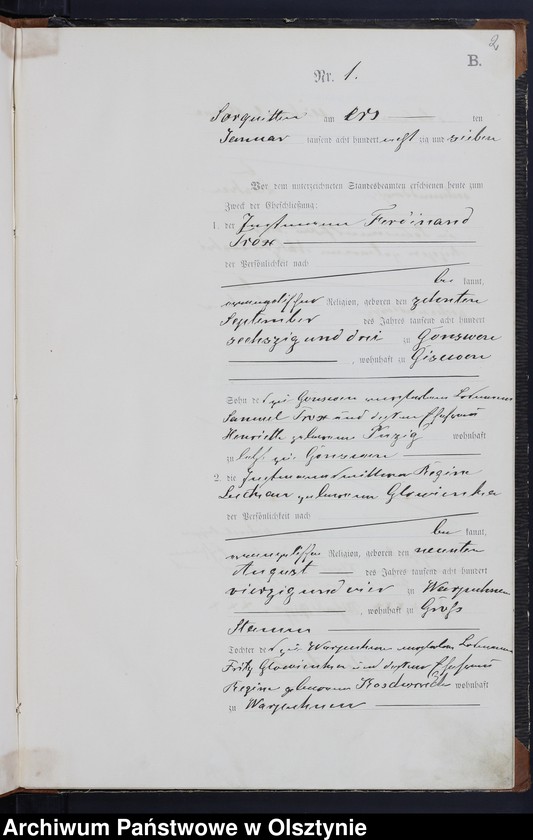 2
B.
Nr. 1.
Sorquitten am ers ten
Januar tausend acht hundert acht zig und sieben
Vor dem unterzeichneten Standesbeamten erschienen heute zum
Zweck der Eheschließung:
1. der Instmann Ferdinand
Trox
der Persönlichkeit nach
be kannt,
evangelischer Religion, geboren den zehnten
September des Jahres tausend acht hundert
sechszig und drei zu Gonswen
, wohnhaft zu Gisewen
Sohn des zu Gonswen verstorbenen Losmanns
Samuel Trox und dessen Ehefrau
Henriette geborene wohnhaft
zu zu Gonswen
2. die Instmannswittwe Regine
geborene Glowienka
der Persönlichkeit nach
be kannt,
evangelischer Religion, geboren den neunten
August des Jahres tausend acht hundert
vierzig und vier zu Warpuhnen
, wohnhaft zu Groß
Stamm
Tochter des zu Warpuhnen verstorbenen Losmanns
Fritz Glowienka und dessen Ehefrau
Regine geborene wohnhaft
zu Warpuhnen
Archiwum Państwowe w Olsztynie